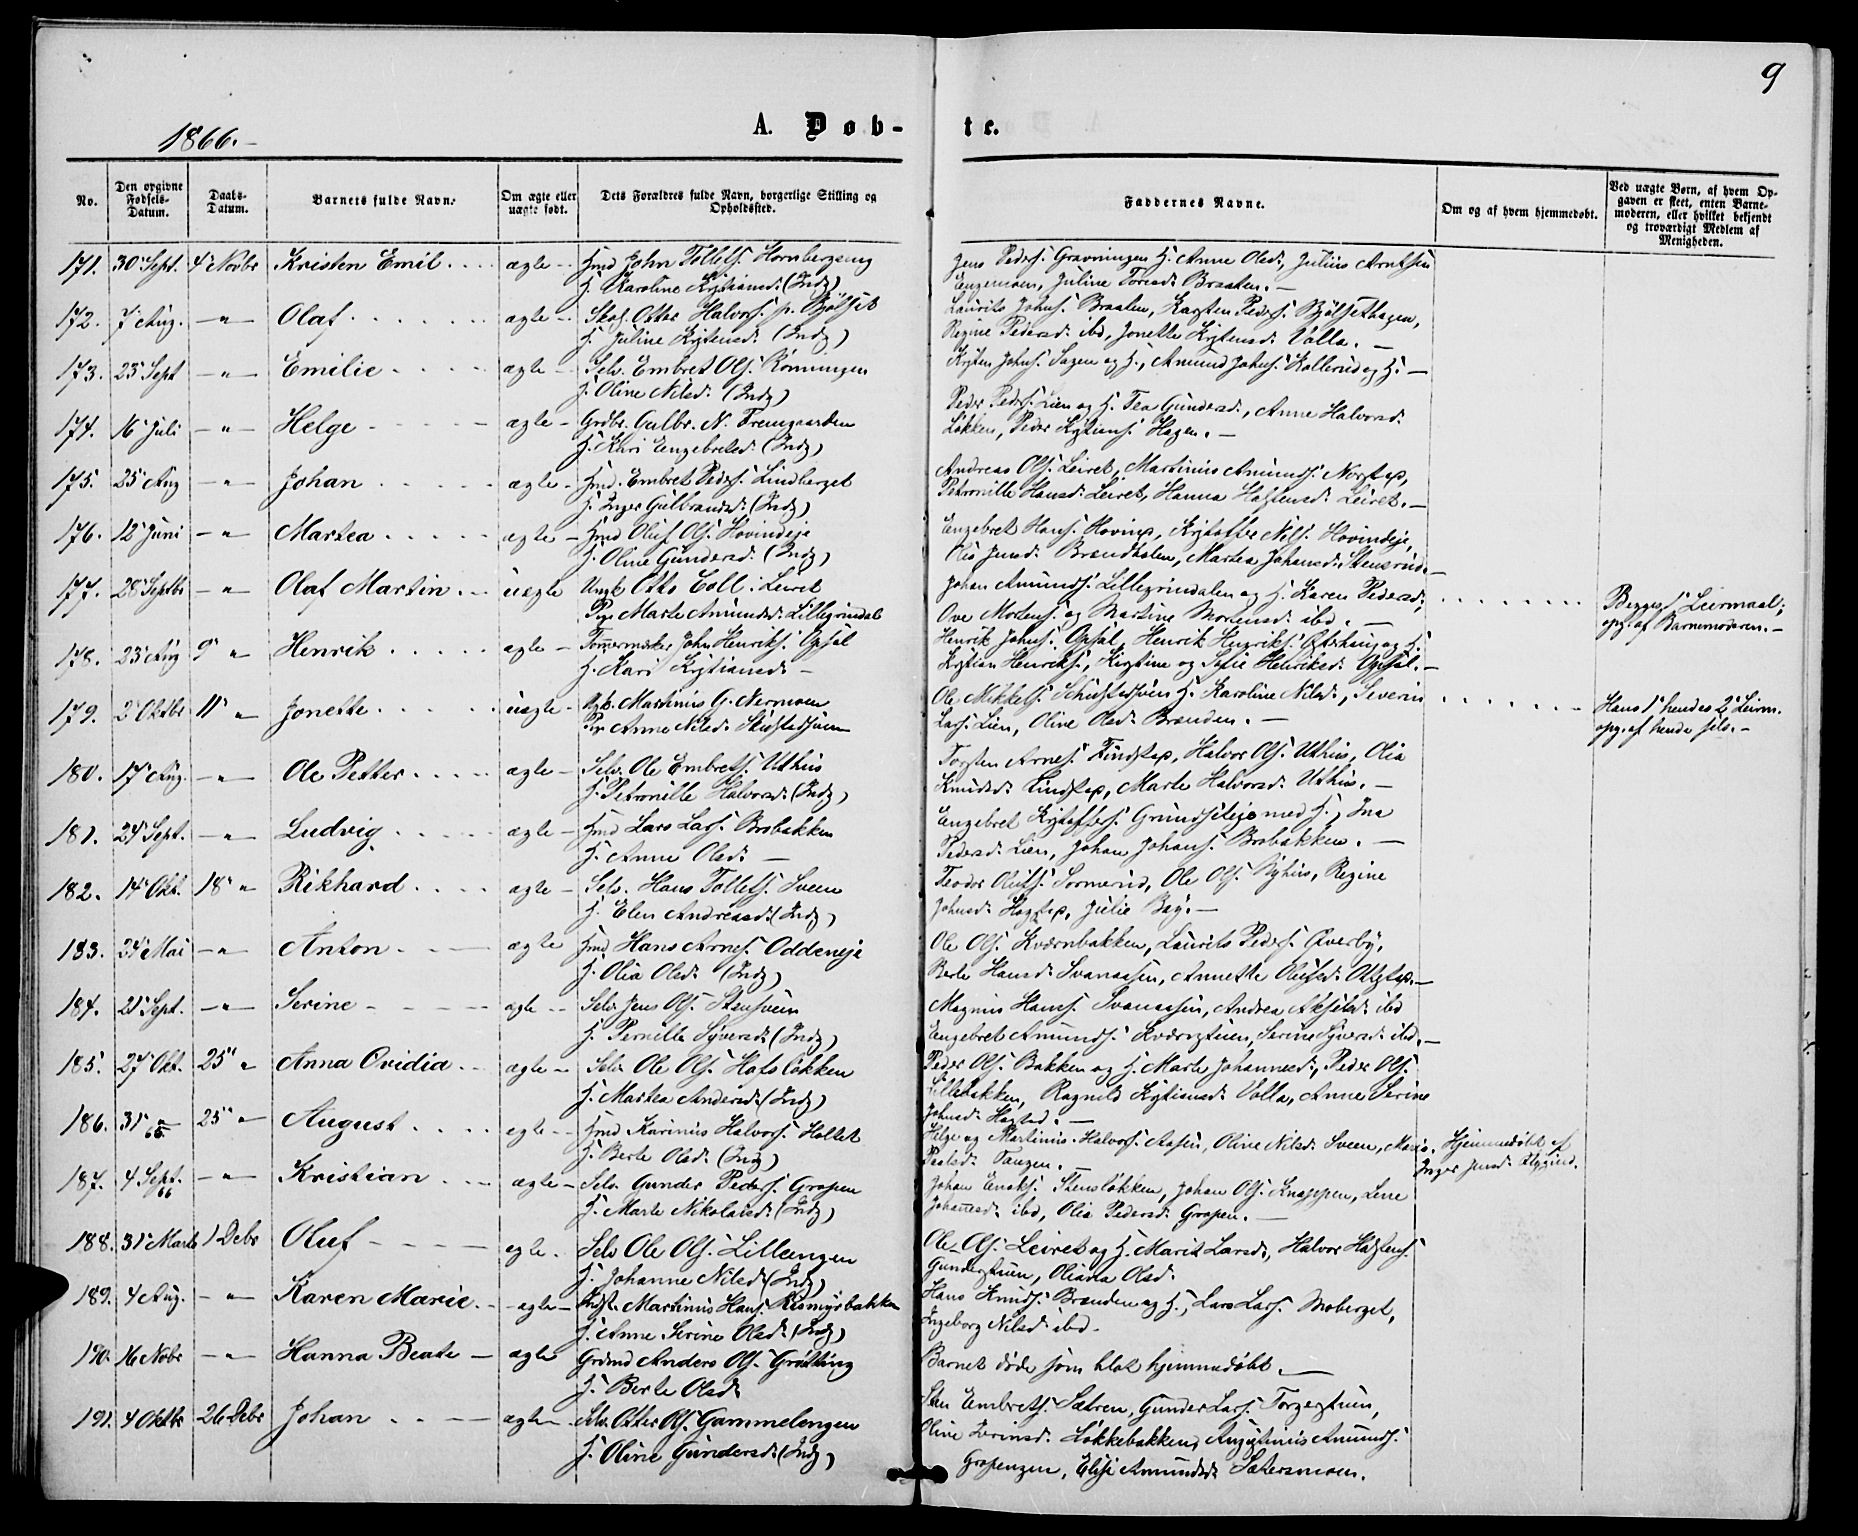 9
1866.-
A. Døb-
te.
No.
Den opgivne Fødsels-Datum.
Daabs-Datum.
Barnets fulde Navn.
Om ægte eller uægte født.
Dets Forældres fulde Navn, borgerlige Stilling og Opholdssted.
Faddernes Navne.
Om og af hvem hjemmedøbt.
Ved uægte Børn, af hvem Opgaven er skeet, enten Barnemoderen, eller hvilket bekjendt og troværdigt Medlem af Menigheden.
171. 30 Sept. 4 Novbr Kristen Emil ægte Hmd John Tollefs. Hornbergseng
H. Karoline Kristiansd. (Indg)
Jens Peders. Gravningen H. Anne Olsd., Julius Arntsen
Engermoen, Juline Toresd. Braaten.-
172. 7 Aug. -"- Olaf ægte Otter Halvors. p. Bjølset
H. Juline Kristensd. (Indg)
Laurits Johns. Braaten, Karsten Peders. Bjølsethagen,
Regine Pedersd. ibd, Jonette Kristensd. Volla.-
173. 23 Sept -"- Emilie ægte Selv. Embret Ols. Rønningen
H. Oline Nilsd. (Indg)
Kristen Johns. Sagen og H., Amund Johns. Kollerud og H.-
174. 16 Juli -"- Helge ægte Grdbr. Gulbr. N. Fremgaarden
H. Khri Engebretsd. (Indg)
Peder Peders. Lien og H. Tea Gundersd., Anne Halvorsd.
Løkken, Peder Kristians. Hagen.-
175. 25 Aug -"- Johan ægte Hmd. Embret Peders. Lindberget
H. Inger Gulbrandsd. (Indg)
Andreas Ols. Leiret, Martinius Amunds.
Petronille Hansd. Leiret, Hanna Leiret.-
176. 12 Juni -"- Martea ægte Hmd Oluf Ols. Hovindeje
H. Oline Gundersd. (Indg)
Engebret Hans. Kristoffer Nils. Hovindeje,
Olia Jensd. Brændholen, Martea Johansd. Stensrud.-
177. 28 Septbr -"- Olaf Martin uægte Ungk Otto Coll i Leiret
Pig. Marte Amundsd. Lillegrindal
Johan Amunds. Lillegrindalen og H. Karen Pedersd,
Ove Mortens. og Martine Mortensd. ibd.-
Begges 1 Leiermaal,
opg. af Barnemoderen.-
178. 23 Aug 9 " Henrik ægte Tømmermester John Henriks. Opsal
H. Kari Kristiansd.-
Henrik Johns. Opsal, Henrik Henriks. Østerhaug og H.
Kristian Henriks., Kirstine og Sofie Henriksd. Opsal.-
179. 2 Oktbr 11 " Jonette uægte Ugk. Martinus G. Nermoen
Pige Anne Nilsd.
Ole Mikkels. H. Karoline Nilsd., Severin
Lars. Lien, Oline Olsd. Brænden.-
Hans 1 hendes 2 Leierm.
opg. af hende selv.-
180. 17 Aug. -"- Ole Petter ægte Selv. Ole Embrets. Uthus
H. Petronille Halvorsd. (Indg)
Torsten Arnes. Halvor Ols. Uthus, Olia
Knudsd. Marte Halvorsd. Uthus.-
181. 24 Sept. -"- Ludvig ægte Hmd Lars Lars. Brobakken
H. Anne Olsd.-
Engebret Kristoffers. Grundseteje med H, Ina
Pedersd. Lien, Johan Johans. Brobakken.-
182. 14 Okt. 18 " Rikhard ægte Selv. Hans Tollefs. Sveen
H. Elen Andreasd. (Indg)
Teodor Olufs. Sornerud, Ole Ols. Nyhus, Regine
Johnsd. Julie Bay.-
183. 31 Mai -"- Anton ægte Hmd Hans Arnes. Oddeneje
H. Olia Olsd. (Indg)
Ole Ols. Kværnbakken, Laurits Peders. Øverby,
Berte Hansd. Svanaasen, Annette Olufsd.
184. 21 Sept. -"- Serine ægte Selv. Jens Ols. Stensveen
H. Pernille Syversd. (Indg)
Magnus Hans. Svanaasen, Andrea Akselsd. ibd
Engebret Amunds. Kværnstuen, Serine Syversd. ibd.-
185. 27 Okt. 25 " Anna Ovidia ægte Selv. Ole Ols. Hofsløkken
H. Martea Andersd. (Indg)
Peder Ols. Bakken og H. Marte Johannesd., Peder Ols.
Lillebakken, Ragnild Kristiansd. Volla, Anne Serine
Johnsd.
186. 31 25 " August egte Hmd Karinus Halvors. Holtet
H. Berte Olsd. (Indg)
Helge og Martinus Halvors. Aasen, Oline Nilsd. Sveen, Maria
Paalsd. Tangen.
Hjemmedøbt af
Inger Jensd.
187. 4 Sept. 66 -"- Kristian ægte Selv. Gunder Peders. Gropen
H. Marte Nikolaisd. (Indg)
Johan Stensløkken, Johan Ols. Knappen, Lene
Johansd. ibd, Olia Pedersd. Gropen.-
188. 31 Marts 1 Debr Oluf egte Selv Ole Ols. Lillengen
H. Johanne Nilsd. (Indg)
Ole Ols. Leiret og H. Marit Larsd., Halvor
Gunderstuen, Oliana Olsd.
189. 4 Aug. -"- Karen Marie egte Martinus Hans. Rismyrbakken
H. Anne Serine Olsd. (Indg)
Hans Knuds. Brænden og H., Lars Lars. Moberget,
Ingeborg Nilsd. ibd.
190. 16 Nobr -"- Hanna Beate ægte Grdmd Anders Ols. Grøtting
H. Berte Olsd.
Barnet døde som blot hjemmedøbt.-
191. 4 Oktbr 26 Debr Johan ægte Selv. Otter Ols. Gammelengen
H. Oline Gundersd. (Indg)
Sten Embrets. Sætren, Gunder Lars. Torgerstuen,
Oline Løkkebakken, Augustinus Amunds.
Gropengen, Elise Amundsd. Sætersmoen.